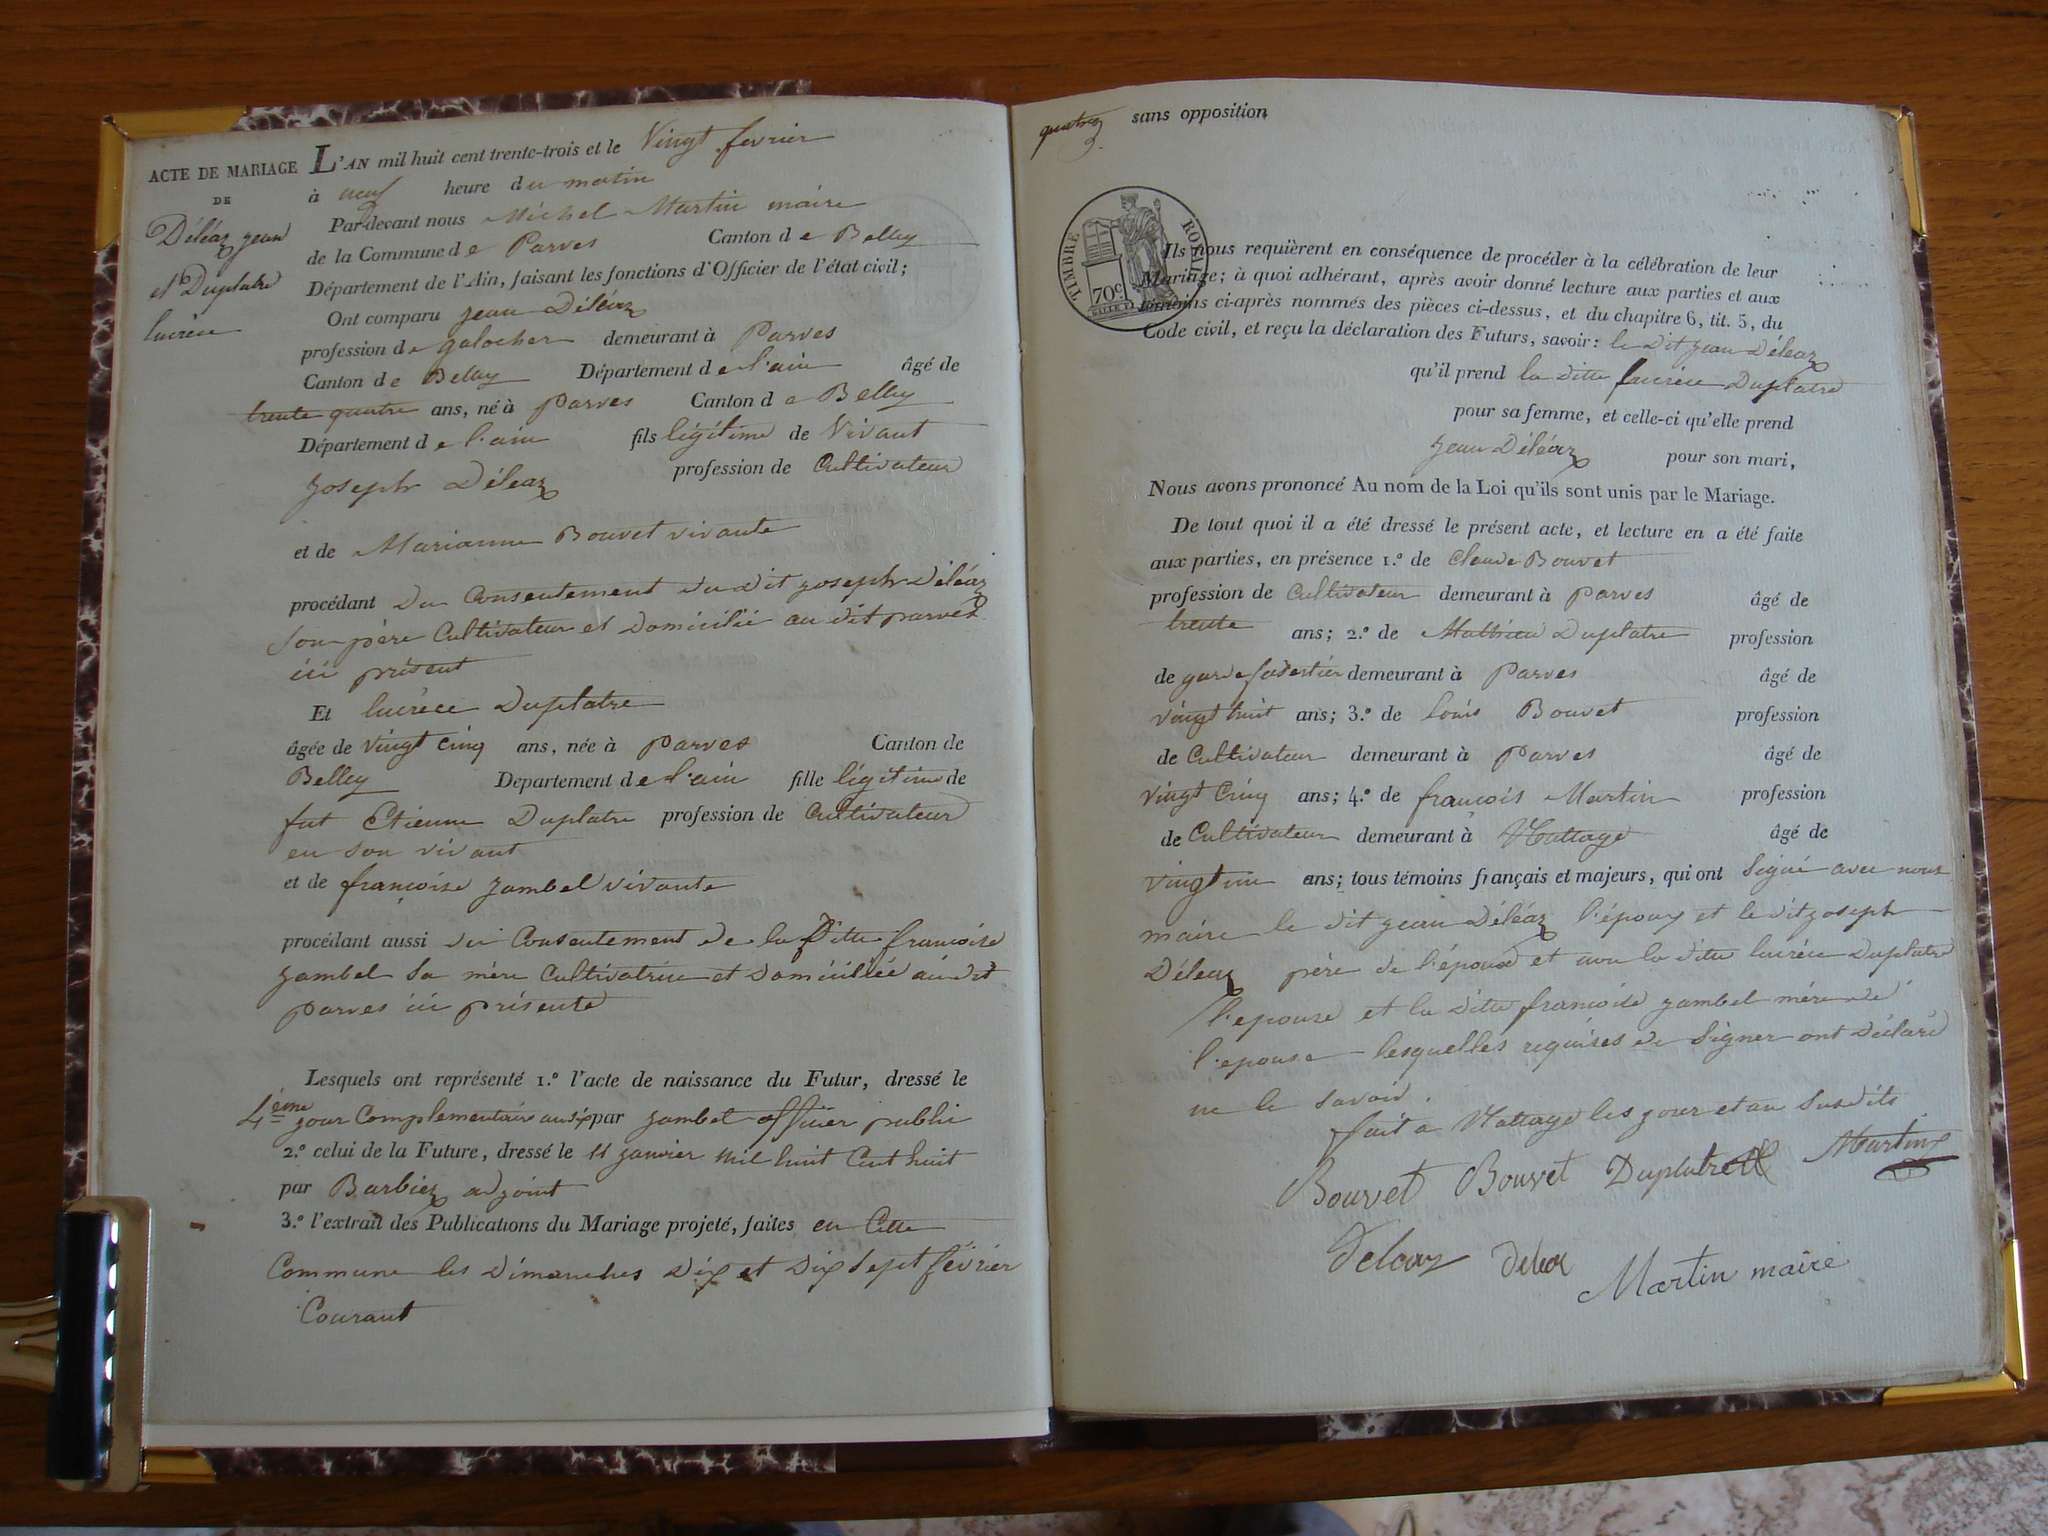 ACTE DE MARIAGE
DE
Déléaz jean
et Duplatre
lucrèce
L'AN mil huit cent trente-trois et le Vingt fevrier
à neuf heure du matin
Par-devant nous Michel Martin maire
de la Commune de Parves Canton de Belley
Département de l'Ain, faisant les fonctions d'Officier de l'état civil;
Ont comparu jean Déléaz
profession de galocher demeurant à Parves
Canton de Belley Département de l'ain âgé de
trente quatre ans, né à parves Canton de Belley
Département de l'ain fils légitime de Vivant
joseph Déleaz profession de Cultivateur
et de Marianne Bouvet vivante
procédant du Consentement du dit joseph Déléaz
son père Cultivateur et domicilié au dit parves
ici présent
Et lucrèce Duplatre
âgée de vingt cinq ans, née à parves Canton de
Belley Departement de l'ain fille légitime de
fut Etienne Duplatre profession de Cultivateur
en son vivant
et de françoise jambel vivante
procédant aussi du Consentement de la ditte françoise
jambel sa mère Cultivatrice et domiciliée au dit
parves ici présente
Lesquels ont représenté 1.º l'acte de naissance du Futur, dressé le
4ème jour Complementaire an six par jambel officier public
2.º celui de la Future, dressé le 11 janvier mil huit Cent huit
par Barbier adjoint
3.º l'extrait des Publications du Mariage projeté, faites en Cette
Commune les Dimanches dix et dix sept février
Courant
sans opposition
TIMBRE ROYAL
70c
Ils nous requièrent en conséquence de procéder à la célébration de leur
Mariage; à quoi adhérant, après avoir donné lecture aux parties et aux
témoins ci-après nommés des pièces ci-dessus, et du chapitre 6, tit. 5, du
Code civil, et reçu la déclaration des Futurs, savoir: le dit jean Déleaz
qu'il prend la ditte lucrèce Duplatre
pour sa femme, et celle-ci qu'elle prend
jean Déléaz pour son mari,
Nous avons prononcé Au nom de la Loi qu'ils sont unis par le Mariage.
De tout quoi il a été dressé le présent acte, et lecture en a été faite
aux parties, en présence 1.º de Claude Bouvet
profession de Cultivateur demeurant à parves âgé de
trente ans; 2.º de Mathieu Duplatre profession
de garde forestier demeurant à Parves âgé de
vingt huit ans; 3.º de louis Bouvet profession
de Cultivateur demeurant à Parves âgé de
vingt Cinq ans; 4.º de françois Martin profession
de Cultivateur demeurant à Nattage âgé de
vingt un ans; tous témoins français et majeurs, qui ont signé avec nous
maire le dit jean Déléaz l'époux et le dit joseph
Déleaz père de l'époux et non la ditte lucrèce Duplatre
l'epouse et la ditte françoise jambel mère de
l'epouse lesquelles requises de signer ont déclaré
ne le savoir.
fait a Nattage les jour et an susdits
Bouvet Bouvet Duplatre Martin
Deleaz Deleaz Martin maire